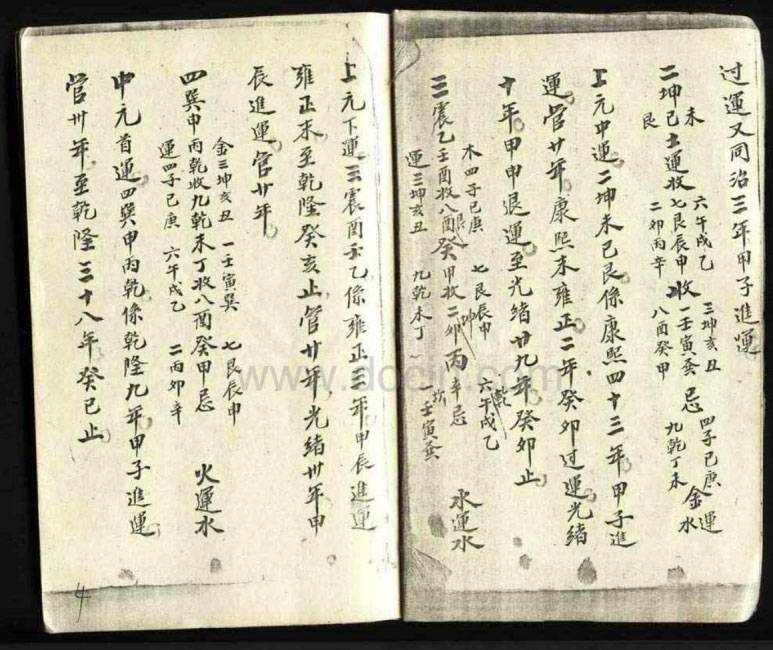 过運又同治三年甲子進運
二坤己土運收 七艮辰申 收 一壬寅巽 忌 金水
未
艮
六午戌乙
二卯丙辛
三坤亥丑
八酉癸甲
四子己庚運
九乾丁未
上元中運二坤未己艮係康熙四十三年甲子進
運管廿年康熙末雍正二年癸卯过運光緒
十年甲申退運至光緒廿九年癸卯止
三震乙壬酉收八酉癸甲收二卯丙辛忌 水運水
木四子己庚 七艮辰申 六午戌乙
運三坤亥丑 九乾未丁 一壬寅巽
上元下運三震酉壬乙係雍正三年甲辰進運
雍正末至乾隆癸亥止管廿年光緒卅年甲
辰進運管廿年
四巽申丙乾收九乾未丁收八酉癸甲忌 火運水
金三坤亥丑 一壬寅巽 七艮辰申
運四子己庚 六午戌乙 二丙卯辛
中元首運四巽甲丙乾係乾隆九年甲子進運
管卅年至乾隆三十八年癸巳止
4
www.docin.com